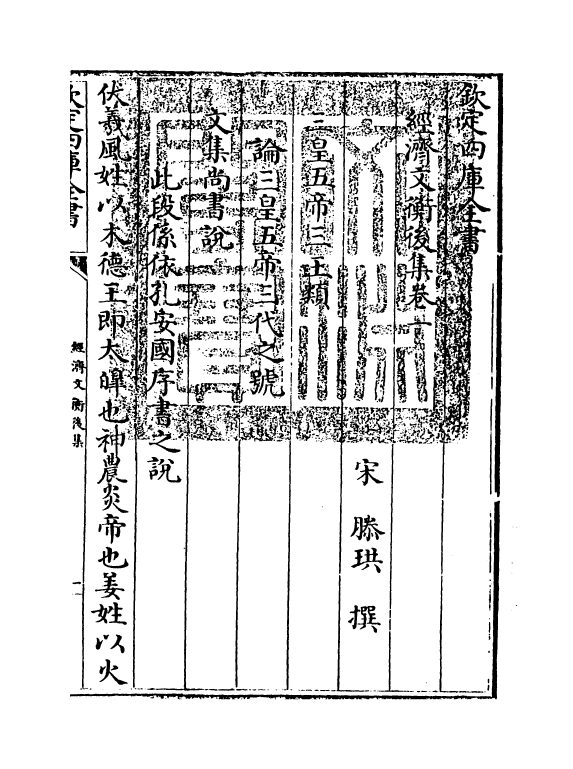 欽定四庫全書
經濟文衡後集卷一
宋 滕珙 撰
三皇五帝三王類
論三皇五帝三代之號
文集尚書說
此段係依孔安國序書之說
伏羲風姓以木德王即太皥也神農炎帝也姜姓以火
欽定四庫全書
經濟文衡後集
一